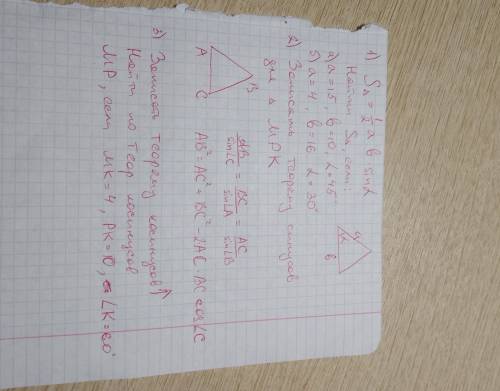 1) S∆ = 1/2 a b sin α
Найти S∆, если:
а) a = 15, b = 10, α = 45
б) a = 4, b = 16, α = 30°
a
α
b
2) Записать теорему синусов
для ∆ МРК
A
B
C
AB/sin∠C = BC/sin∠A = AC/sin∠B
AB² = AC² + BC² - 2AC · BC cos∠C
3) Записать теорему косинусов↑
Найти по теор косинусов
МР, если МК = 4, РК = 10, ∠К = 60°